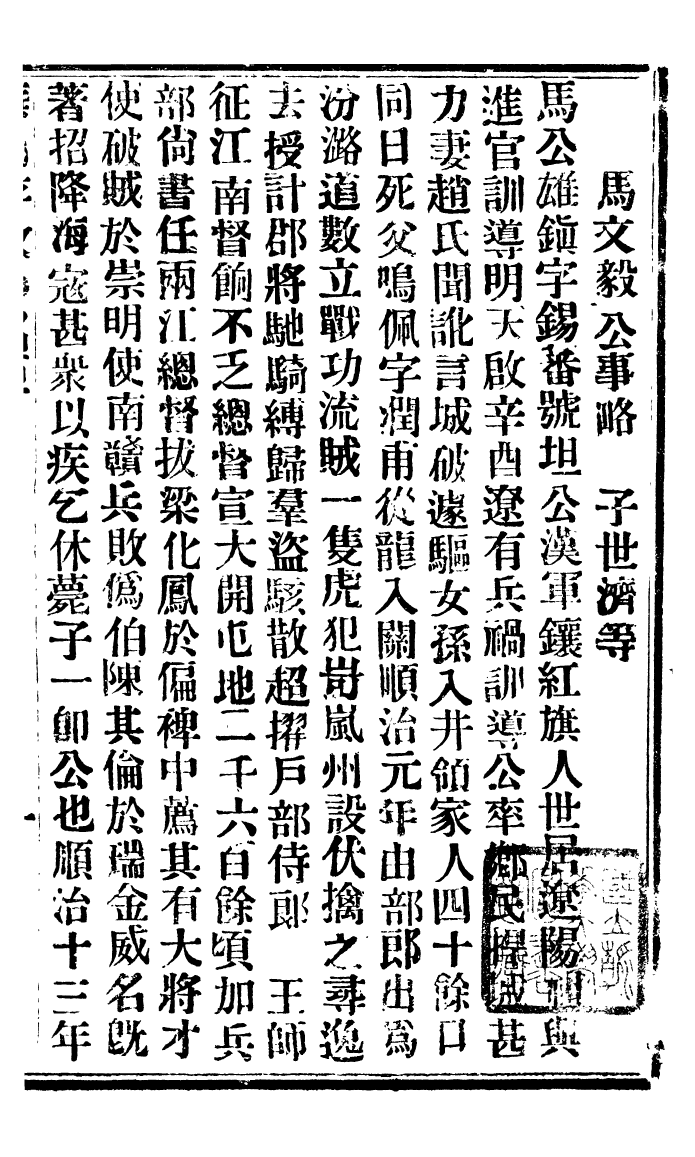 馬文毅公事略　子世濟等
馬公雄鎮字錫蕃號坦公漢軍鑲紅旗人世居遼陽祖與
進官訓導明天啟辛酉遼有兵禍訓導公率鄉民捍城甚
力妻趙氏聞訛言城破遽驅女孫入井領家人四十餘口
同日死父鳴佩字潤甫從龍入關順治元年由部郎出爲
汾潞道數立戰功流賊一隻虎犯岢嵐州設伏擒之尋逸
去授計郡將馳騎縛歸羣盜駭散超擢戶部侍郎　王師
征江南督餉不乏總督宣大開屯地二千六百餘頃加兵
部尙書任兩江總督拔梁化鳳於偏裨中薦其有大將才
使破賊於崇明使南贛兵敗僞伯陳其倫於瑞金威名旣
著招降海寇甚衆以疾乞休薨子一卽公也順治十三年